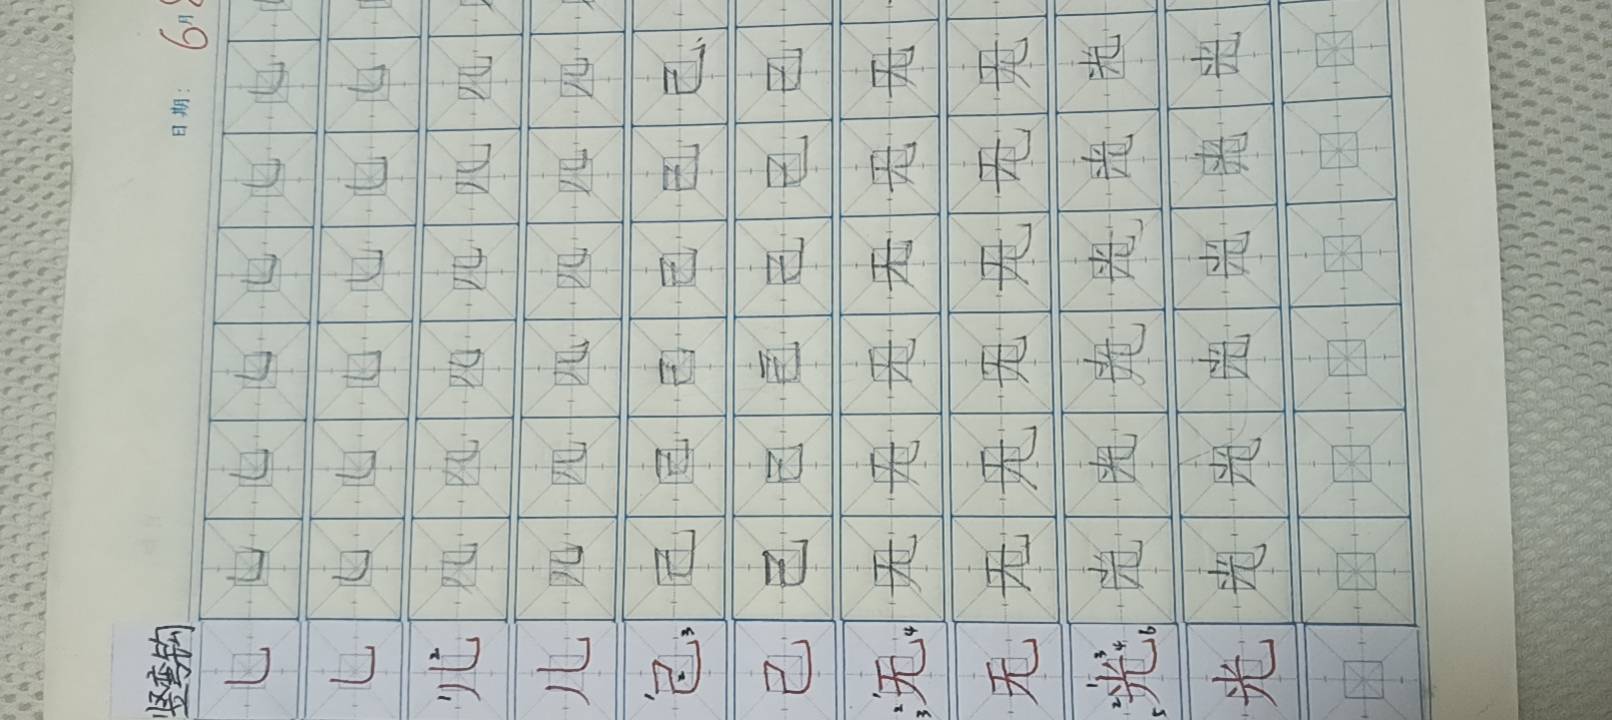 竖弯钩 日期: 6月
乚 乚 乚 乚 乚 乚 乚
乚 乚 乚 乚 乚 乚 乚
1 2 儿 儿 儿 儿 儿 儿 儿
儿 儿 儿 儿 儿 儿 儿
1 2 3 己 己 己 己 己 己 己
己 己 己 己 己 己 己
1 2 3 4 无 无 无 无 无 无 无
无 无 无 无 无 无 无
1 2 3 4 5 6 光 光 光 光 光 光 光
光 光 光 光 光 光 光